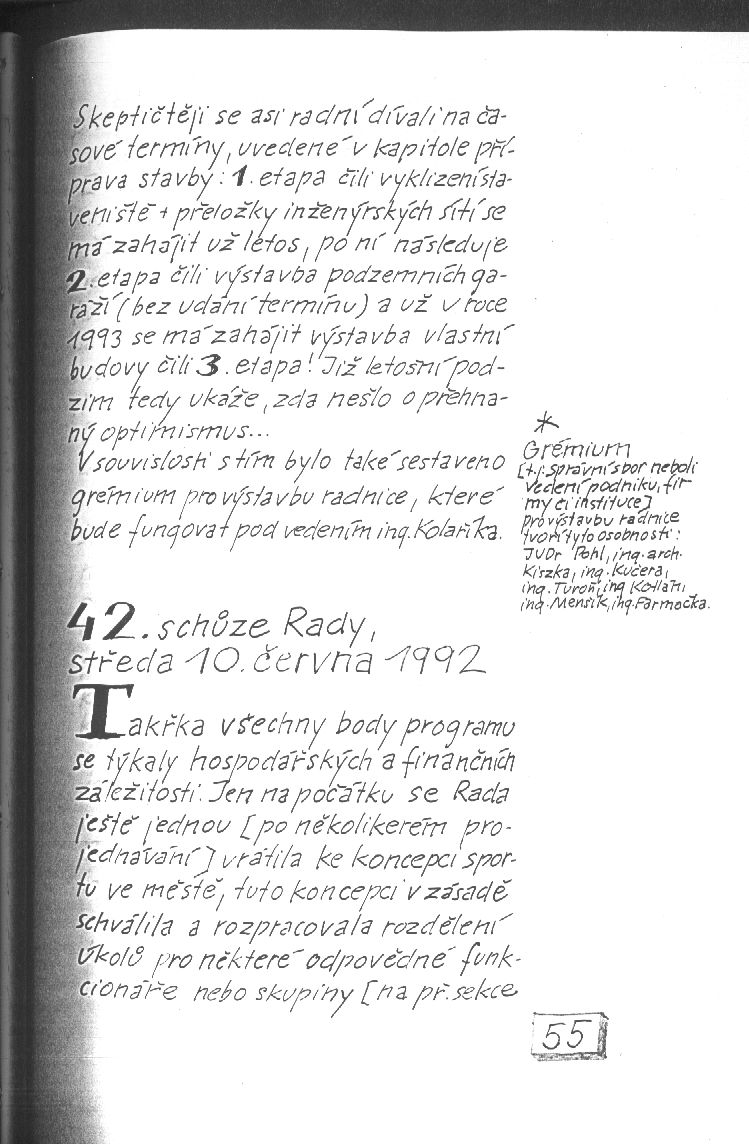 Skeptičtěji se asi radní dívali na ča-
sové termíny, uvedené v kapitole pří-
prava stavby: 1. etapa čili vyklizení sta-
veniště + přeložky inženýrských sítí se
má zahájit už letos, po ní následuje
2. etapa čili výstavba podzemních ga-
ráží (bez udání termínu) a už v roce
1993 se má zahájit výstavba vlastní
budovy čili 3. etapa! Již letošní pod-
zim tedy ukáže, zda nešlo o přehna-
ný optimismus...
V souvislosti s tím bylo také sestaveno
grémium pro výstavbu radnice, které
bude fungovat pod vedením ing. Kolaříka.
*
Grémium
[t.j. správní sbor neboli
vedení podniku, fir
my či instituce]
pro výstavbu radnice
tvoří tyto osobnosti:
JUDr Pohl, ing. arch.
Kiszka, ing. Kučera,
ing. Turoň, ing
ing. Menšík, ing. Farmačka.
42. schůze Rady,
středa 10. června 1992
Takřka všechny body programu
se týkaly hospodářských a finančních
záležitostí. Jen na počátku se Rada
ještě jednou [po několikerém pro-
jednávání] vrátila ke koncepci spor-
tu ve městě, tuto koncepci v zásadě
schválila a rozpracovala rozdělení
úkolů pro některé odpovědné funk-
cionáře nebo skupiny [na př. sekce
55